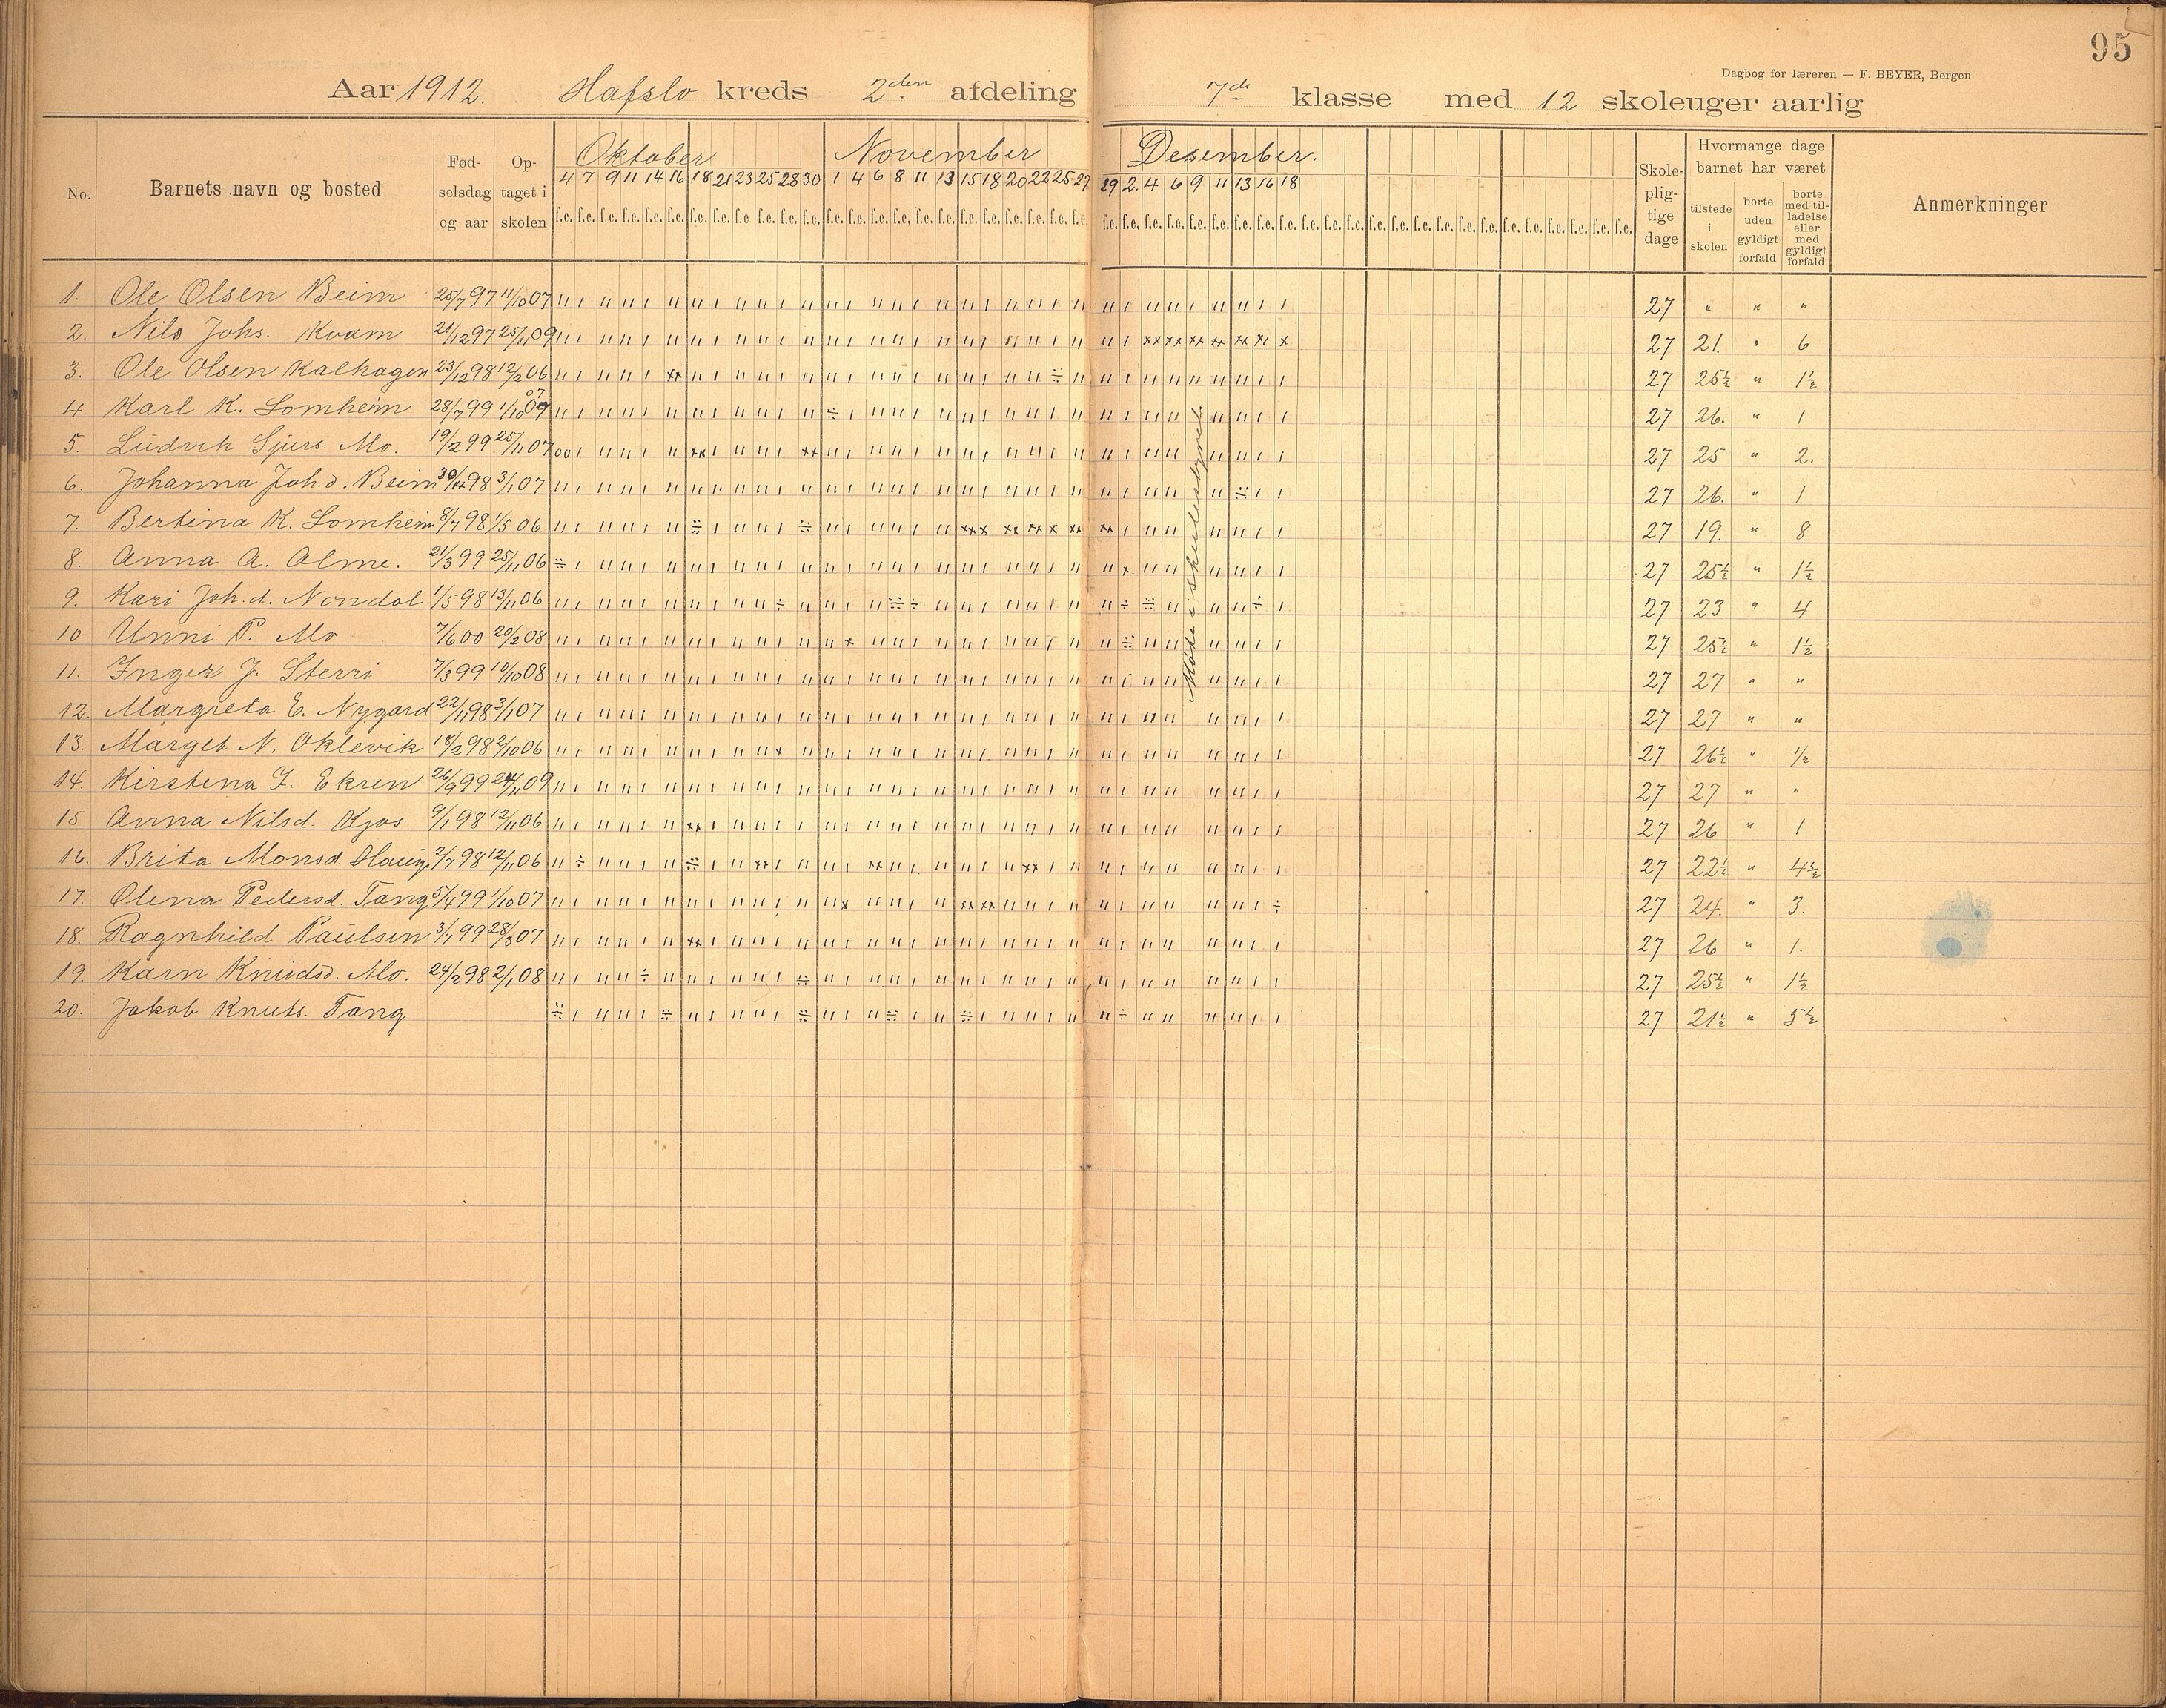 95
Dagbog for læreren — F. BEYER, Bergen
Aar 1912. Hafslo kreds 2den afdeling 7de klasse med 12 skoleuger aarlig
No. Barnets navn og bosted Fødselsdag og aar Optaget i skolen Oktober November Desember. Skolepligtige dage Hvormange dage barnet har været Anmerkninger
4 7 9 11 14 16 18 21 23 25 28 30 1 4 6 8 11 13 15 18 20 22 25 27 29 2. 4 6 9 11 13 16 18
tilstede i skolen borte uden gyldigt forfald borte med tilladelse eller med gyldigt forfald
f.e. f.e. f.e. f.e. f.e. f.e. f.e. f.e. f.e. f.e. f.e. f.e. f.e. f.e. f.e. f.e. f.e. f.e. f.e. f.e. f.e. f.e. f.e. f.e. f.e. f.e. f.e. f.e. f.e. f.e. f.e. f.e. f.e. f.e. f.e. f.e. f.e. f.e. f.e. f.e. f.e. f.e. f.e. f.e. f.e. f.e. f.e. f.e.
1. Ole Olsen Beim 25/7 97 11/10 07 27 " " "
2. Nils Johs. Kvam 21/12 97 25/11 09 27 21. " 6
3. Ole Olsen Kalhagen 23/12 98 12/2 06 27 25½ " 1½
4 Karl K. Lomheim 28/7 99 1/10 07 27 26. " 1
5. Ludvik Sjurs. Mo. 19/2 99 25/11 07 27 25 " 2.
6. Johanna Joh.d. Beim 30/4 98 3/1 07 27 26. " 1
7. Bertina K. Lomheim 8/7 98 1/5 06 27 19. " 8
8. Anna A. Alme. 21/3 99 25/11 06 27 25½ " 1½
9. Kari Joh.d. Nondal 1/5 98 13/11 06 27 23 " 4
10 Unni P. Mo 7/6 00 20/2 08 27 25½ " 1½
11. Inger J. Sterri 7/3 99 10/10 08 27 27 " "
12. Margreta E. Nygard 22/11 98 3/1 07 27 27 " "
13. Marget N. Oklevik 18/2 98 2/10 06 27 26½ " 1/2
14. Kirstena J. Ekren 26/9 99 24/11 09 27 27 " "
15 Anna Nilsd. Kjos 9/1 98 12/11 06 27 26 " 1
16. Brita Monsd. Haug 2/7 98 12/11 06 27 22½ " 4½
17. Olena Pedersd. Tang 5/4 99 1/10 07 27 24. " 3.
18. Ragnhild Paulsen 3/7 99 28/3 07 27 26 " 1.
19. Karn Knudsd. Mo. 24/2 98 2/1 08 27 25½ " 1½
20. Jakob Knuts. Tang 27 21½ " 5½
Møte i skulestyret